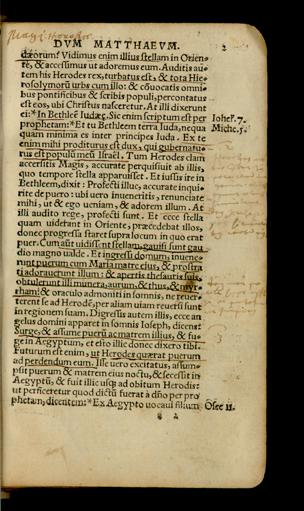 Magi Herodes
DVM MATTHAEVM. 2
dæorum? Vidimus enim illius stellam in Orien-
te, & accessimus ut adoremus eum. Auditis au
tem his Herodes rex, turbatus est, & tota Hie
rosolymorũ urbs cum illo: & cõuocatis omni
bus pontificibus & scribis populi, percontatus
est eos, ubi Christus nasceretur. At illi dixerunt
ei: *In Bethleẽ Iudææ. Sic enim scriptum est per
prophetam: *Et tu Bethleem terra Iuda, nequa
quam minima es inter principes Iuda. Ex te
enim mihi proditurus est dux, qui gubernatu-
rus est populũ meũ Israël. Tum Herodes clam
accersitis Magis, accurate perquisiuit ab illis,
quo tempore stella apparuisset. Et iussis ire in
Bethleem, dixit: Profecti illuc, accurate inqui
rite de puero: ubi uero inueneritis, renunciate
mihi, ut & ego ueniam, & adorem illum. At
illi audito rege, profecti sunt. Et ecce stella
quam uiderant in Oriente, præcedebat illos,
donec progressa staret supra locum in quo erat
puer. Cum aũt uidissent stellam, gauisi sunt gau
dio magno ualde. Et ingressi domum, inuene-
runt puerum cum Maria matre eius, & prostra
ti adorauerunt illum: & apertis thesauris suis,
obtulerunt illi munera, aurum, & thus, & myr
rham: & oraculo admoniti in somnis, ne reuer
terent se ad Herodẽ, per aliam uiam reuersi sunt
in regionem suam. Digressis autem illis, ecce an
gelus domini apparet in somnis Ioseph, dicens:
Surge, & assume puerũ ac matrem illius, & fu-
ge in Aegyptum, et esto illic donec dixero tibi.
Futurum est enim, ut Herodes quærat puerum
ad perdendum eum. Isse uero excitatus, assum-
psit puerum & matrem eius noctu, & secessit in
Aegyptũ, & fuit illic usque ad obitum Herodis:
ut perficeretur quod dictũ fuerat à dño per pro
phetam, dicentem: *Ex Aegypto uocaui filium
a 2
Iohel. 7.
Miche. 5.
Osee 11.